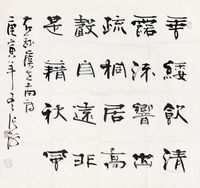 垂緌飲清
露流響出
疏桐居高
聲自遠非
是藉秋風
庚寅年